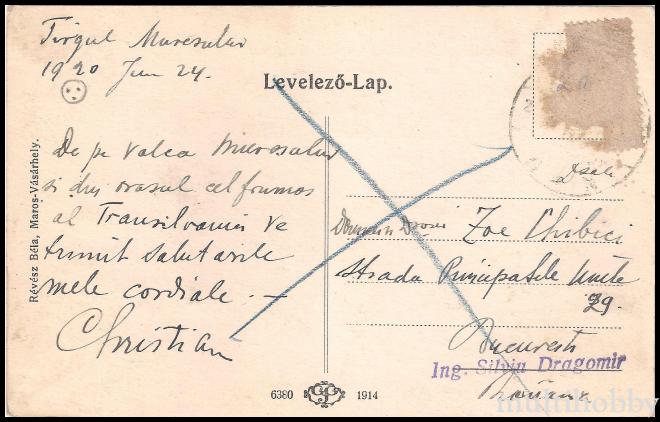 Tîrgul Muresului
1920 Jun 24.
Levelező-Lap.
De pe valea Muresului
si din orasul cel frumos
al Transilvaniei Ve
trimit salutarile
mele cordiale. —
Christian
Révész Béla, Maros-Vásárhely.
Zoe Chibici
Strada Principatele Unite
29.
Bucuresti
Ing. Silviu Dragomir
6380 1914
multihobby